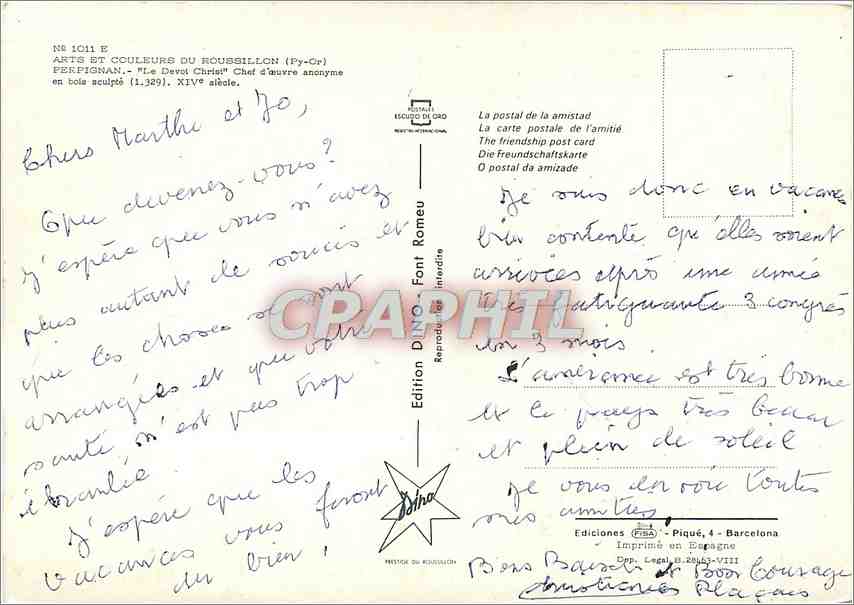 Nº 1011 E
ARTS ET COULEURS DU ROUSSILLON (Py-Or)
PERPIGNAN.- "Le Devot Christ" Chef d'œuvre anonyme
en bois sculpté (1.329). XIVe siècle.
Chers Marthe et Jo,
Que devenez-vous?
J'espère que vous n'avez
plus autant de soucis et
que les choses se sont
arrangées et que votre
santé n'est pas trop
ébranlée.
J'espère que les
vacances vous feront
du bien!
POSTALES
ESCUDO DE ORO
REGISTRO INTERNACIONAL
Edition DINO - Font Romeu
Reproduction interdite
CPAPHIL
Dino
PRESTIGE DU ROUSSILLON
La postal de la amistad
La carte postale de l'amitié
The friendship post card
Die Freundschaftskarte
O postal da amizade
Je suis donc en vacances
bien contente qu'elles soient
arrivées après une année
très fatiguante 3 congrès
en 3 mois.
L'ambiance est très bonne
et le pays très beau
et plein de soleil
Je vous envoie toutes
mes amitiés,
Ediciones FISA - Piqué, 4 - Barcelona
Imprimé en Espagne
Dep. Legal B. 28663-VIII
Bons Baisers et Bon Courage